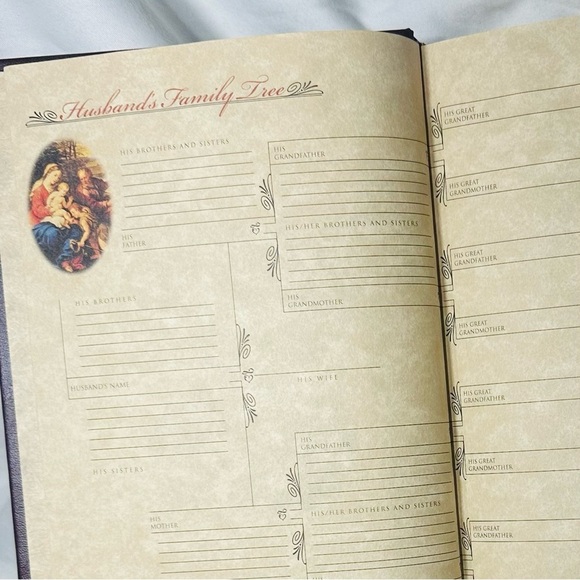 Husband's Family Tree
HIS BROTHERS AND SISTERS
HIS
FATHER
HIS BROTHERS
HUSBAND'S NAME
HIS SISTERS
HIS
MOTHER
HIS
GRANDFATHER
HIS/HER BROTHERS AND SISTERS
HIS
GRANDMOTHER
HIS WIFE
HIS
GRANDFATHER
HIS/HER BROTHERS AND SISTERS
HIS
HIS GREAT
GRANDFATHER
HIS GREAT
GRANDMOTHER
HIS GREAT
GRANDFATHER
HIS GREAT
GRANDMOTHER
HIS GREAT
GRANDFATHER
HIS GREAT
GRANDMOTHER
HIS GREAT
GRANDFATHER